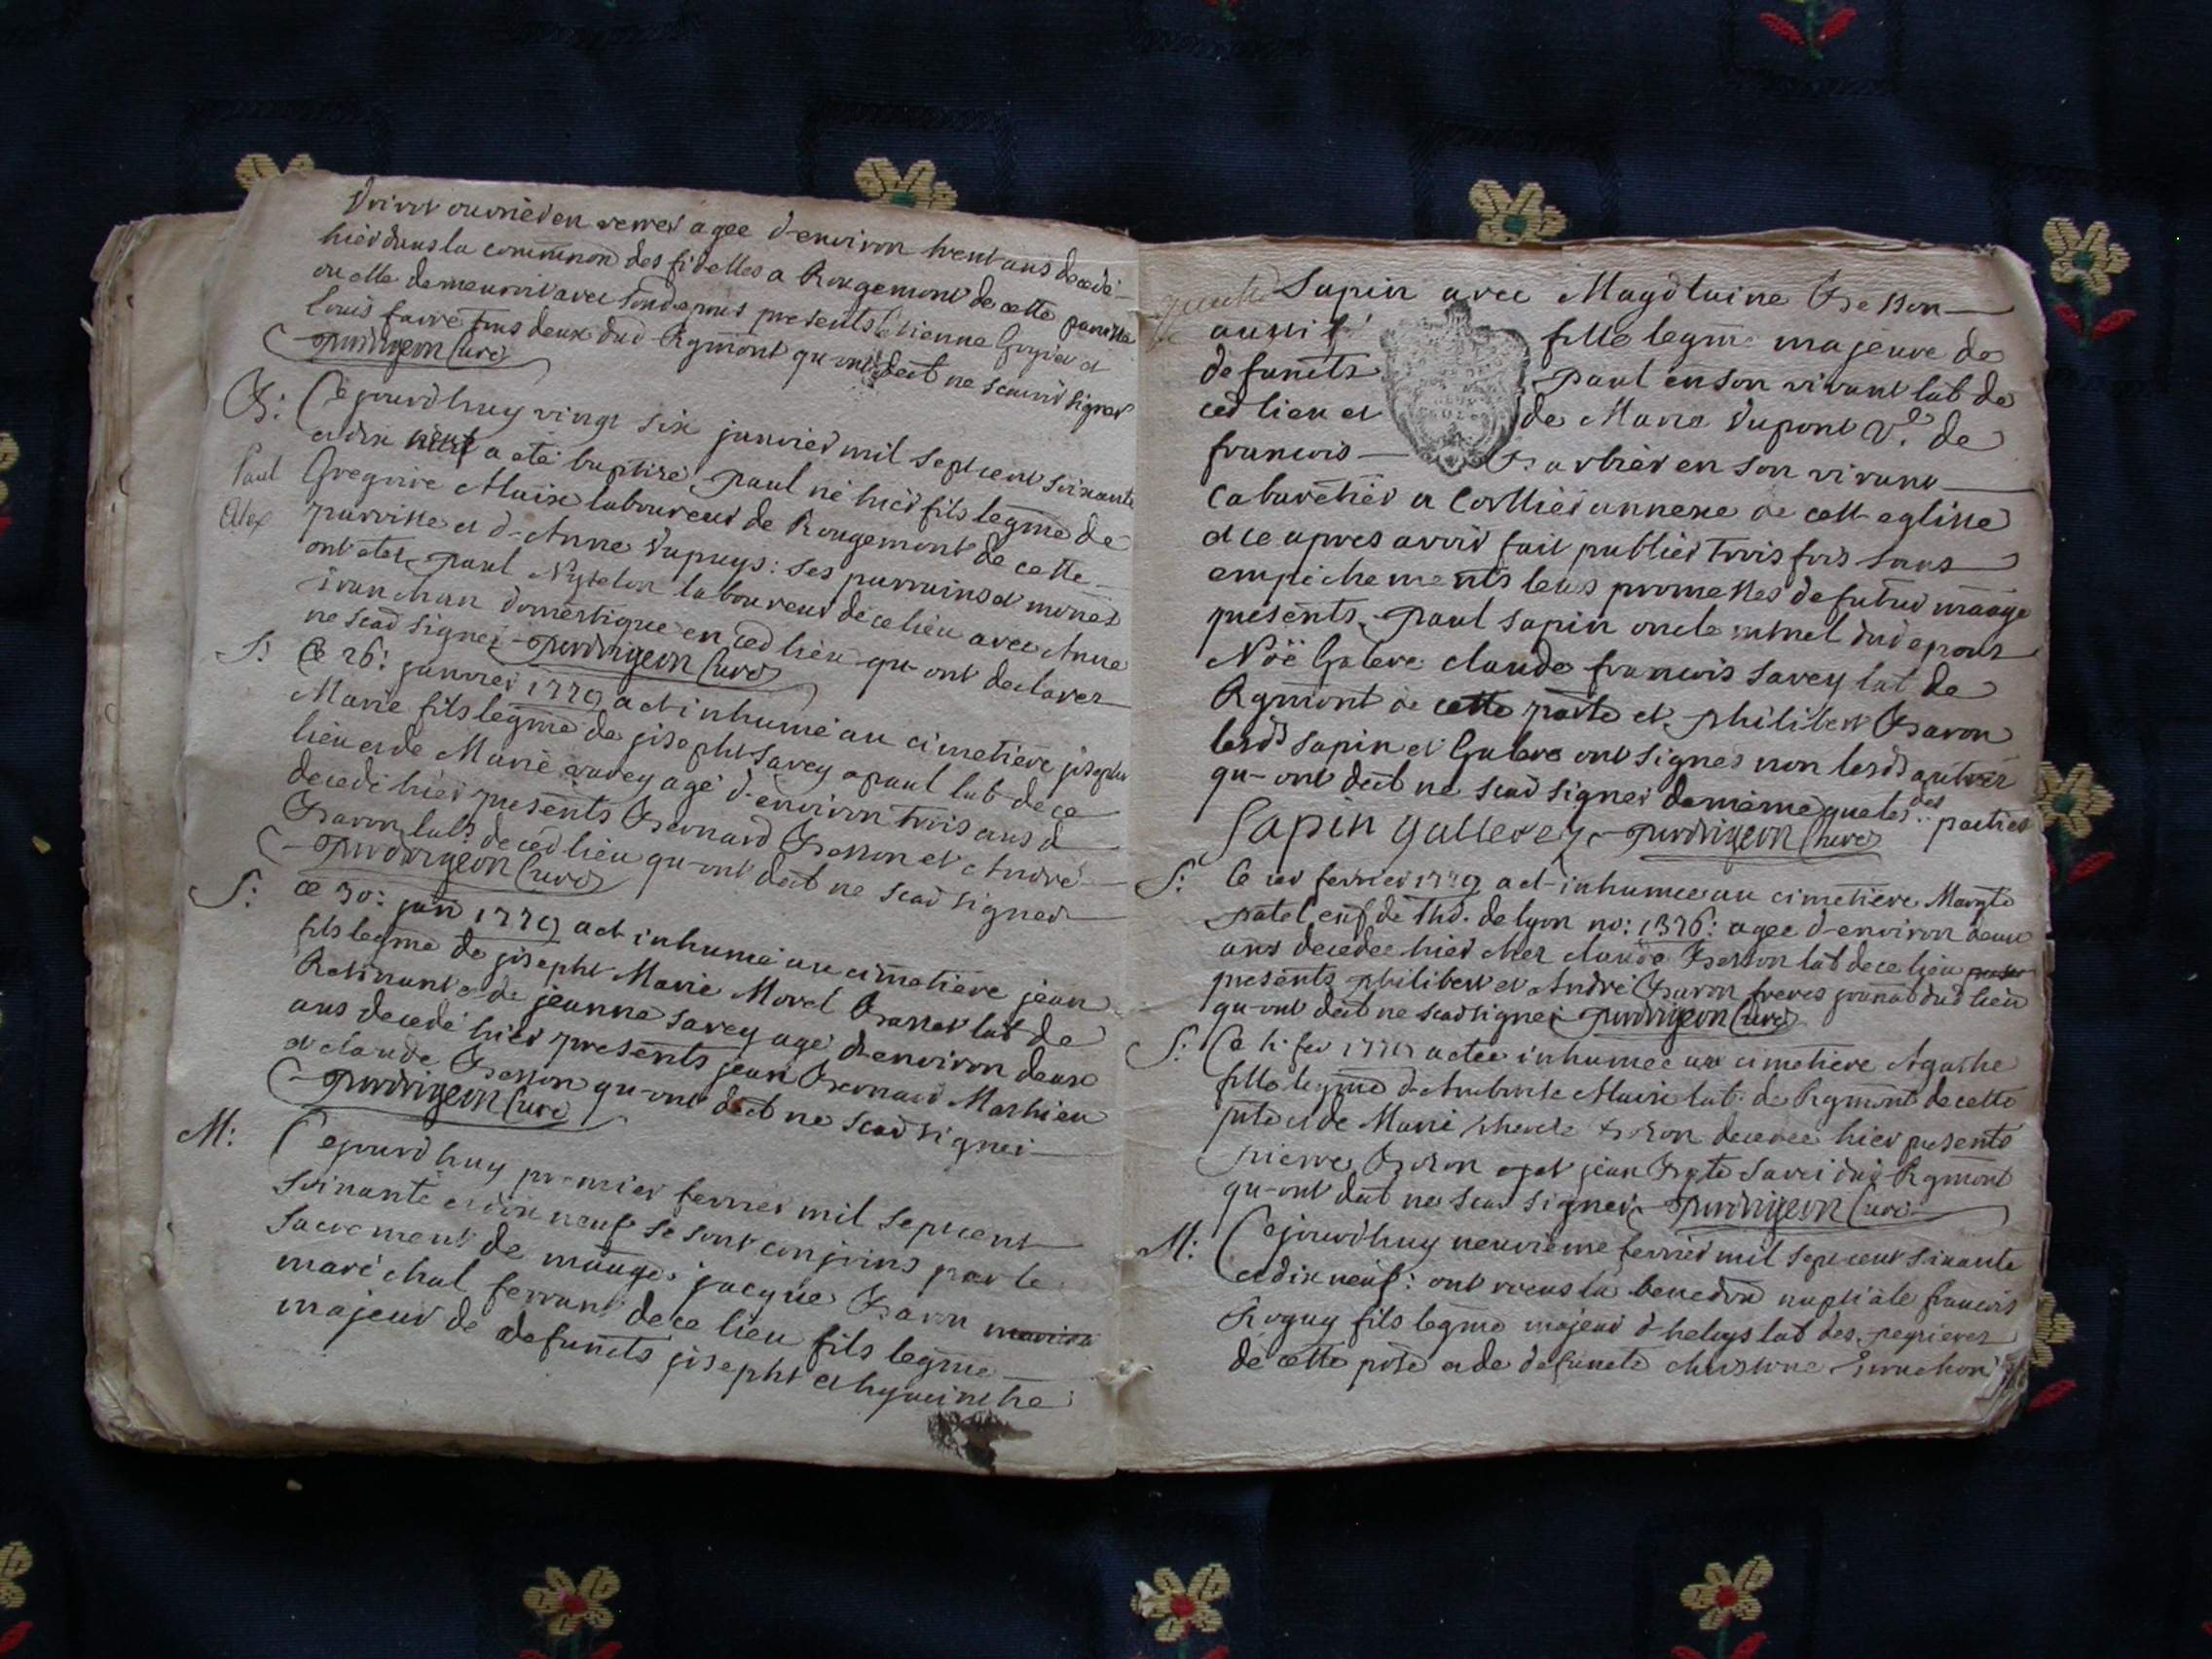 ouvrier en verres agee d'environ trent ans decedé
hier dans la communion des fidelles a Rougemont de cette paroisse
ou elle demeuroit avec son epous presents Etienne et
Louis favre tous deux dud Rgmont qu-ont declt ne scavoir signer
curé
B: Cejourd huy vingt six janvier mil sept cent soixante
et dix neuf a eté baptisé paul né hier fils legme de
Paul Gregoire Alaix laboureur de Rougemont de cette
Alex parroisse et d-Anne Dupuys: ses parrains et
ont etes paul laboureur de ce lieu avec Anne
domestique en ced lieu qu-ont declarer
ne scad signer curé
S: Ce 26: janvier 1779 a et inhumé au cimetiere joseph
Marie fils legme de joseph Savey apaul lab de ce
lieu et de Marie Savey agé d-environ trois ans d
decedé hier presents Bernard Besson et André
Baron labs de ced lieu qu-ont declt ne scad signer
curé
S: ce 30: janv 1779 a et inhumé au cimetiere jean
fils legme de joseph Marie Morel Basset lab de
et de jeanne Savey agé d-environ deux
ans decedé hier presents jean Bernard Mathieu
et claude Besson qu-ont declt ne scad signer
curé
M: Cejourd huy premier fevrier mil sept cent
soixante et dix neuf se sont conjoins par le
sacrement de maage jacque Baron
maréchal ferrant de ce lieu fils legme
majeur de defuncts joseph et hyacinthe
Sapin avec Magdlaine Besson
aussi fille legme majeure de
defuncts paul en son vivant lab de
ced lieu et de Marie Dupont Ve. de
francois Barbier en son vivant
Cabaretier a Corllier annexe de cett eglisse
et ce apres avoir fait publier trois fois sans
empéchements leurs promesses de futur maage
présents paul Sapin oncle mtnel dud epous
Noë Galere claude francois Savey lab de
Rgmont de cette parte et philibert Baron
lesds Sapin et Galere ont signés non lesds autres
qu-ont declt ne scad signer de méme que les des parties
Sapin gallerey curé
S: Ce 1er fevrier 1779 a et inhumee au cimetiere Margte
patel enf de lhd. de lyon no: 1376: agee d-environ deux
ans decedee hier chez claude Besson lab de ce lieu
présents philibert et André Baron freres dud lieu
qu-ont declt ne scad signer curé
S: Ce fev 1779 a etee inhumee au cimetiere Agathe
fille legme d-Ambroise Alaix lab. de Rgmont de cette
pste et de Marie decedee hier présents
pierre et jean Bpte Savei dud Rgmont
qu-ont declt ne scad signer curé
M: Cejourdhuy neuvieme fevrier mil sept cent sixante
et dix neuf: ont receus la benedon nuptiale francois
fils legme majeur d-heluys lab des
de cette pste et de defuncte